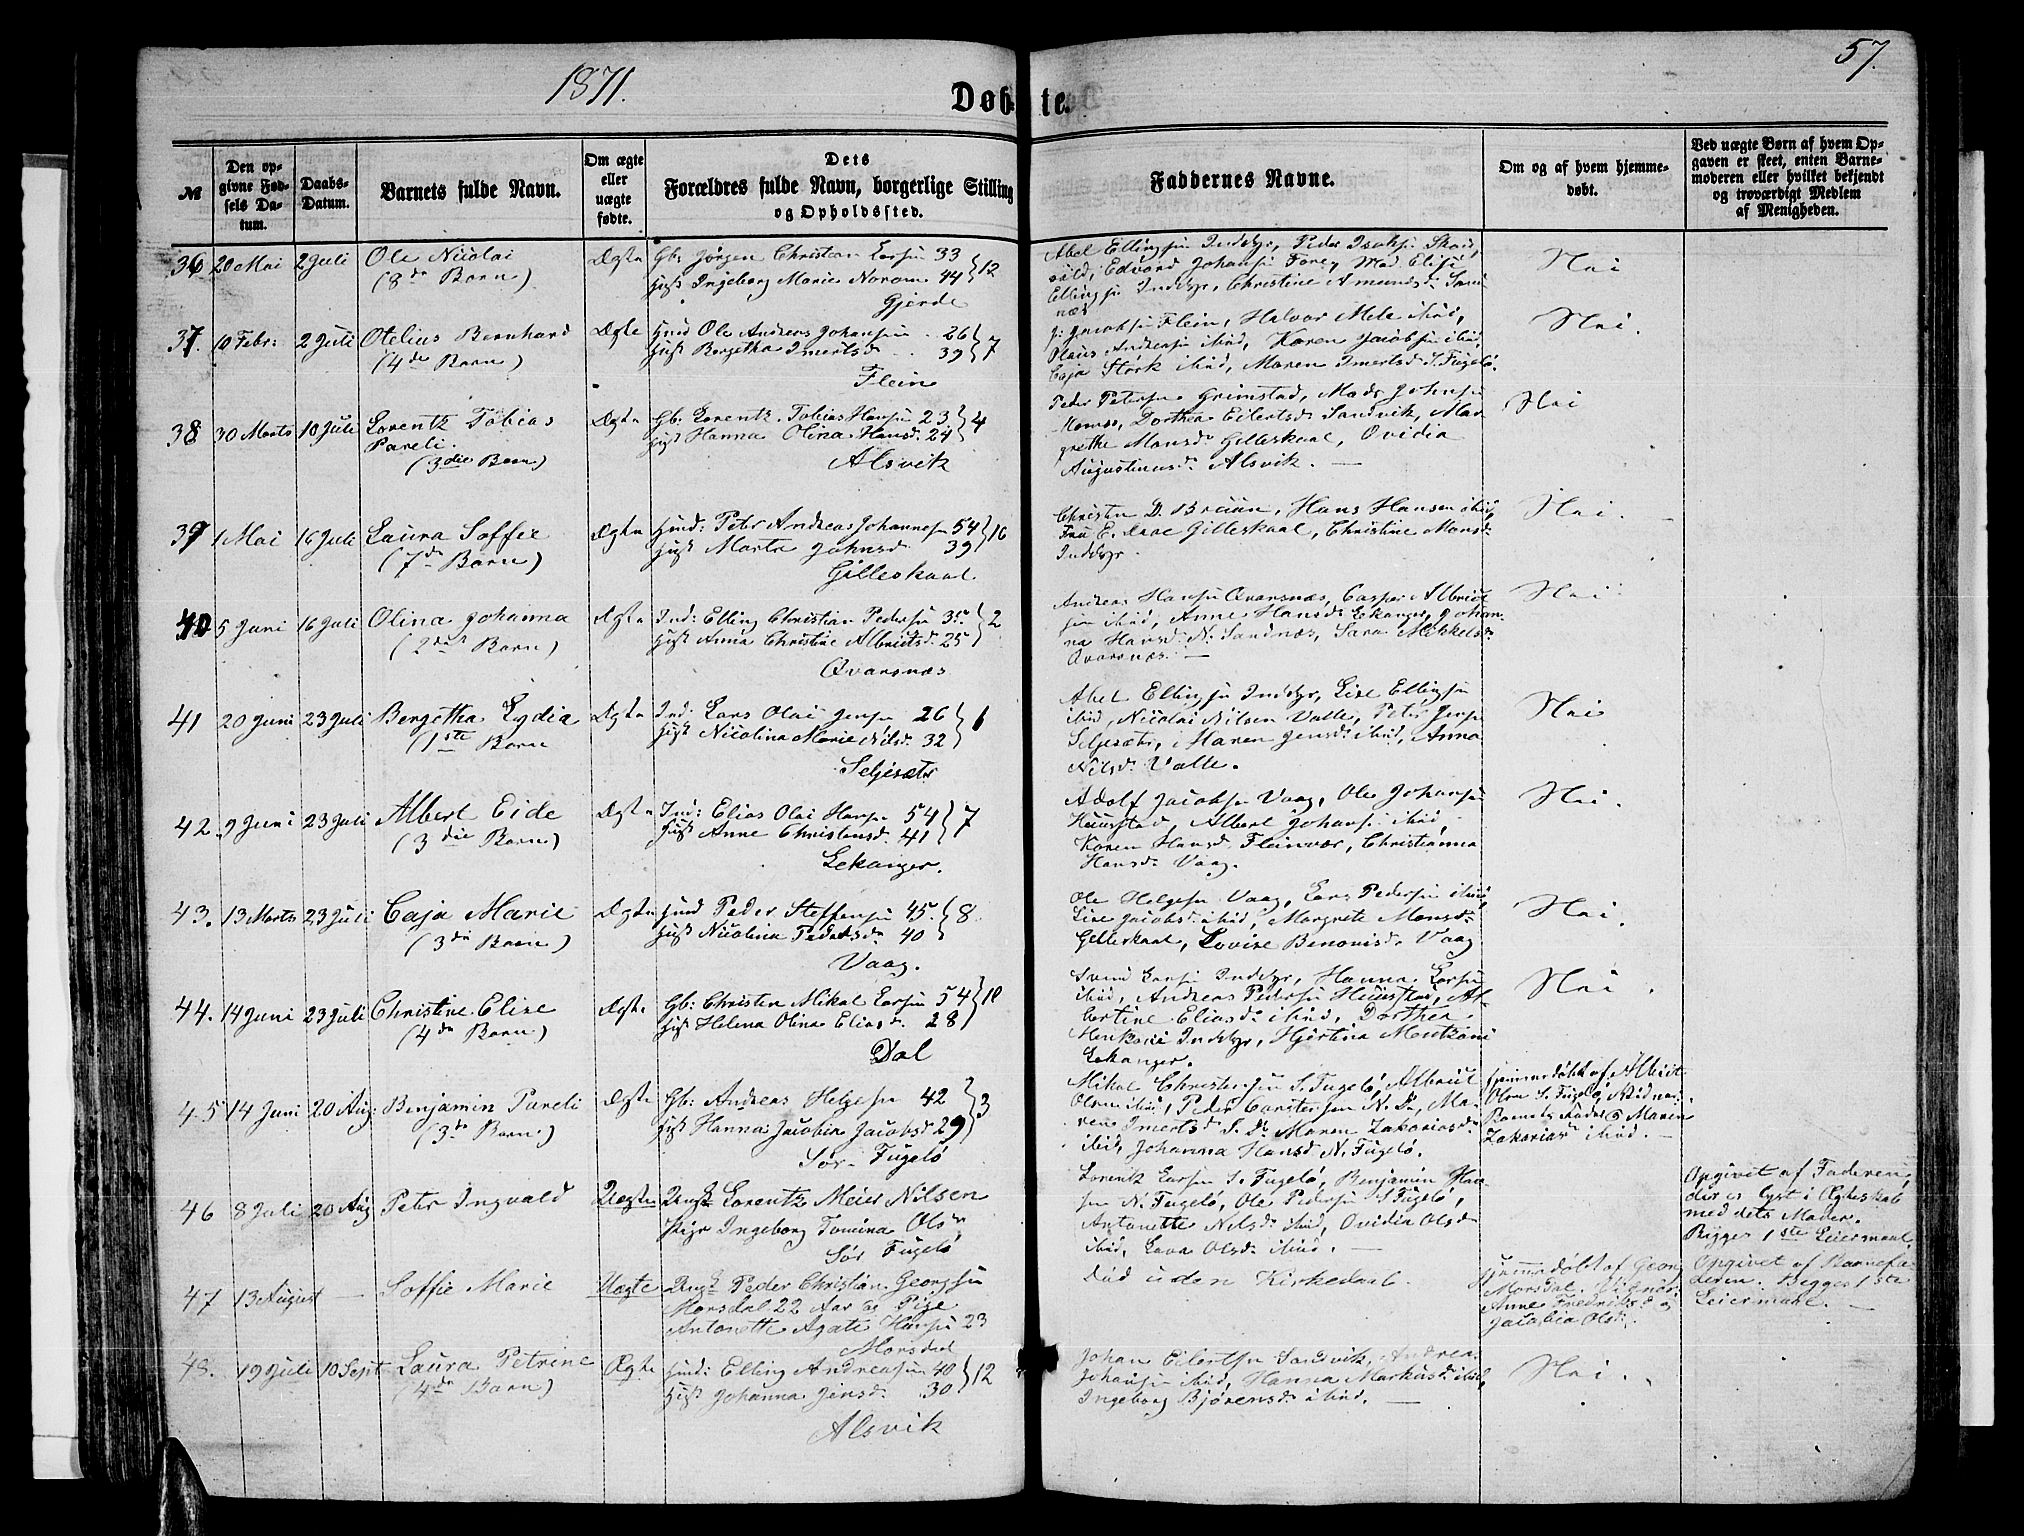 57.
1871.
Døbte.
№
Den op-
givne Fød-
sels Da-
tum.
Daabs-
Datum.
Barnets fulde Navn.
Om ægte
eller
uægte
fødte.
Dets
Forældres fulde Navn, borgerlige Stilling
og Opholdssted.
Faddernes Navne.
Om og af hvem hjemme-
døbt.
Ved uægte Børn af hvem Op-
gaven er skeet, enten Barne-
moderen eller hvilket bekjendt
og troværdigt Medlem
af Menigheden.
36 20 Mai 2 Juli Ole Nicolai Ægte Gb. Jørgen Christian Larsen 33 } 12
(8de Barn) Hust Ingeborg Marie 44
Gjerde
Abel Ellingsen Inddyr, Peder Isaksen
Edvard Johansen Elise
Ellingsen Inddyr, Christine Amundsd.
Nei
37. 10 Febr: 2 Juli Otelius Bernhard Ægte Hmd Ole Andreas Johansen 26 } 7
(4de Barn) Hust Bergetha Imertsd. 39
Flein
J. Jacobsen Flein, Halvor ibid,
Olaus Andreasen ibid, Karen Jacobsen ibid,
Caja Størk ibid, Maren Imertsd. S. Fugelø.
Nei.
38 30 Marts 10 Juli Lorentz Tobias Ægte Gb. Lorentz Tobias Hansen 23 } 4
Pareli. Hust Hanna Olina Hansd. 24
(3die Barn) Alsvik
Peder Petersen Grimstad, Mads Johnsen
Dorthea Eilertsd. Sandvik, Mar-
grethe Monsd. Gilleskaal, Ovidia
Augustinusd. Alsvik. —
Nei
39 1 Mai 16 Juli Laura Soffie Ægte Hmd: Peter Andreas Johannesen 54 } 16
(7de Barn) Hust Marta Johnsd. 39
Gilleskaal.
Christen D. Bruun, Hans Hansen ibid,
Fru E. Gilleskaal, Christine Monsd.
Inddyr.
Nei.
40 5 Juni 16 Juli Olina Johanna Ægte Ind: Elling Christian Pedersen 35 } 2
(2det Barn) Hust Anna Christine Albrigtsd. 25
Qvarsnæs
Andreas Hansen Qvarsnæs, Casper Albrigt-
sen ibid, Anne Hansd. Ekanger, Johan-
na Hansd. N. Sandnæs, Sara Mikkelsd.
Qvarsnæs. —
Nei
41 20 Juni 23 Juli Bergetha Lydia Ægte Ind: Lars Olai Jensen 26 } 1
(1ste Barn Hust Nicolina Marie Nilsd. 32
Seljesæter
Abel Ellingsen Inddyr, Lise Ellingsen
ibid, Nicolai Nilsen Valle, Peter Jensen
Seljesæter, Maren Jensd. ibid, Anna
Nilsd. Valle.
Nei
42 9 Juni 23 Juli Albert Eide Ægte Ind: Elias Olai Hansen 54 } 7
(3die Barn) Hust Anne Christensd. 41
Lekanger.
Adolf Jacobsen Vaag, Ole Johansen
Albert Johansen ibid,
Karen Hansd. Fleinvær, Christianna
Hansd. Vaag.
Nei.
43. 13 Marts 23 Juli Caja Marie Ægte Hmd Peder Steffensen 45 } 8
(3die Barn) Hust Nicolina Pedersd. 40
Vaag.
Ole Helgesen Vaag, Lars Pedersen ibid,
Lise Jacobsd. ibid, Margrete Monsd.
Gilleskaal, Lovise Benonisd. Vaag
Nei.
44. 14 Juni 23 Juli Christine Elise Ægte Gb: Christen Mikal Larsen 54 } 10
(4de Barn) Hust Helena Olina Eliasd. 28
Dal
Svend Larsen Inddyr, Hanna Larsen
ibid, Andreas Pedersen Al-
bertine Eliasd. ibid, Dorthea
Inddyr, Hjertina Mentzoni
Lekanger.
Nei.
45 14 Juni 20 Aug: Benjamin Pareli Ægte Gb: Andreas Helgesen 42 } 3
(3die Barn.) Hust Hanna Jacobia Jacobsd. 29
Sør-Fugelø
Mikal Christensen S. Fugelø, Albrigt
Olsen ibid, Peder Carstensen N. Do, Ma-
ren Imertsd. S. Do. Maren Zakariasd.
ibid, Johanna Hansd. N. Fugelø.
Hjemmedøbt af Albrigt
Olsen S. Fugelø, Vidner:
Barnets Fader & Maren
Zakariasd. ibid. —
46 8 Juli 20 Aug Peter Ingvald Uægte Ungk Lorentz Meier Nilsen
Pige Ingeborg Tomina Olsdr
Sør Fugelø
Lorentz Larsen S. Fugelø, Benjamin Han-
sen N. Fugelø, Ole Pedersen S. Fugelø,
Antonette Nilsd. ibid, Ovidia Olsd.
ibid, Olsd. ibid. —
Opgivet af Faderen,
der er lyst i Ægteskab
med dets Moder.
Begges 1ste Leiermaal.
47 13 August — Soffie Marie Uægte Ungk Peder Christian Georgsen
Morsdal 22 Aar og Pige
Antonette Agate Hansen 23
Morsdal
Død uden Kirkedaab.
Hjemmedøbt af Georg
Morsdal.
Anne Fredriksd. og
Jacobia Olsd.
Opgivet af Barnefa-
deren. Begges 1ste
Leiermaal. —
48. 19 Juli 10 Sept Laura Petrine Ægte Hmd: Elling Andreasen 40 } 12
(4de Barn) Hust Johanna Jensd. 30
Alsvik
Johan Eilertsen Sandvik, Andrea
Johansen ibid, Hanna Markusd. ibid,
Ingeborg Bjørensd. ibid. —
Nei.